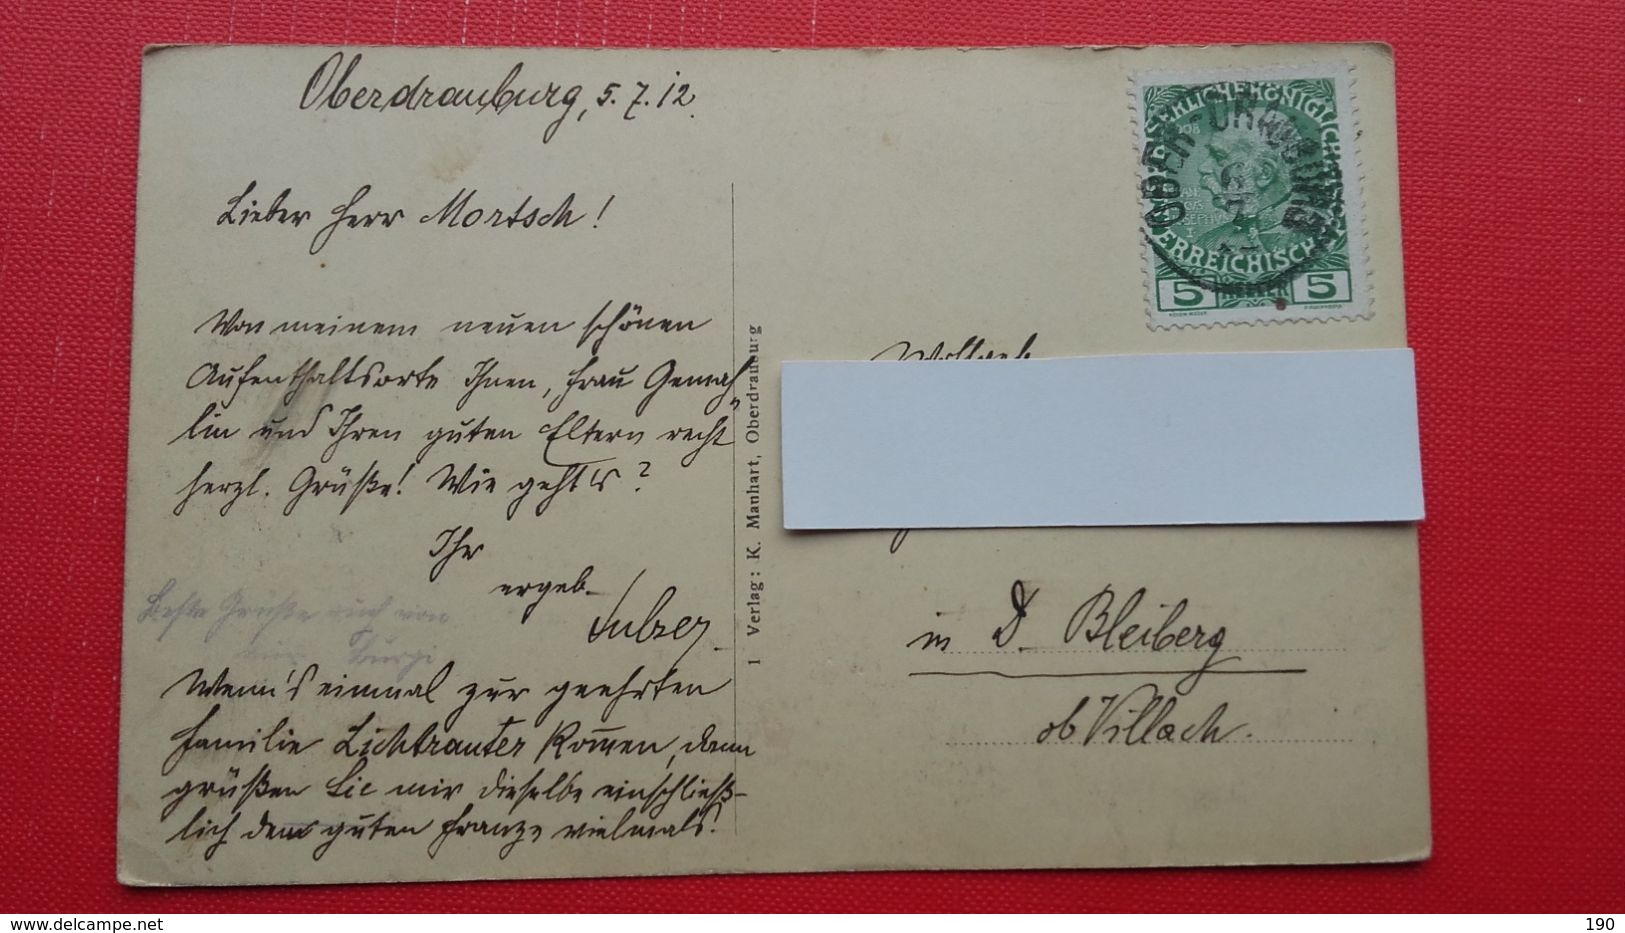 Oberdrauburg, 5.7.12.
Lieber Herr Mortsch!
Von meinem neuen schönen
Aufenthaltsorte Ihnen, Frau Gemah=
lin und Ihren guten Eltern recht
herzl. Grüße! Wie geht's?
Ihr
ergeb.
Sulzer
Beste Grüße auch von
Burgi
Wenn's einmal zur geehrten
Familie Lichtrauter kommen, dann
grüßen Sie mir dieselbe einschließ-
lich dem guten Franze vielmals!
1 Verlag: K. Manhart, Oberdrauburg
KAISERLICHE KÖNIGLICHE
ÖSTERREICHISCHE
5 HELLER 5
OBER-DRAUBURG
6
7
in D. Bleiberg
ob Villach.
190